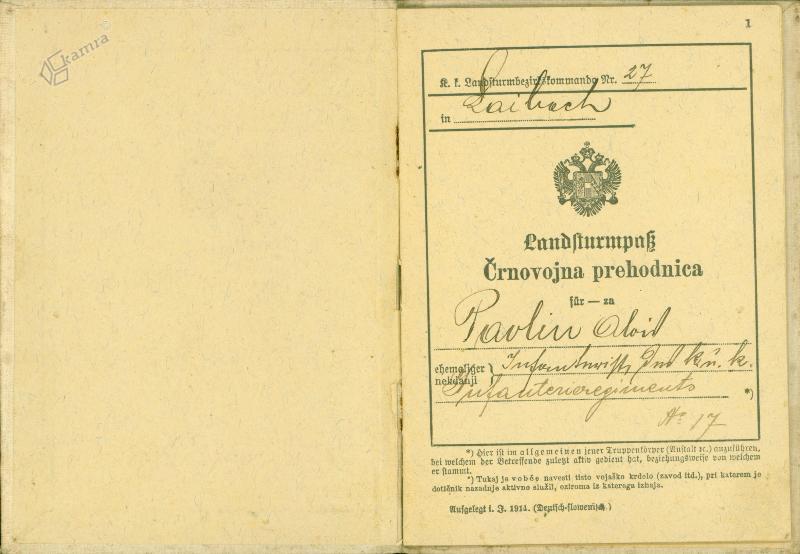 kamra
1
K. k. Landsturmbezirkskommando Nr. 27
in Laibach
Landsturmpaß
Črnovojna prehodnica
für — za
Pavlin Alois
ehemaliger } Infanterist des k. u. k.
nekdanji Infanterieregiments *)
No 17
*) Hier ist im allgemeinen jener Truppenkörper (Anstalt ꝛc.) anzuführen,
bei welchem der Betreffende zuletzt aktiv gedient hat, beziehungsweise von welchem
er stammt.
*) Tukaj je vobče navesti tisto vojaško krdelo (zavod itd.), pri katerem je
dotičnik nazadnje aktivno služil, oziroma iz katerega izhaja.
Aufgelegt i. J. 1914. (Deutsch-slowenisch.)